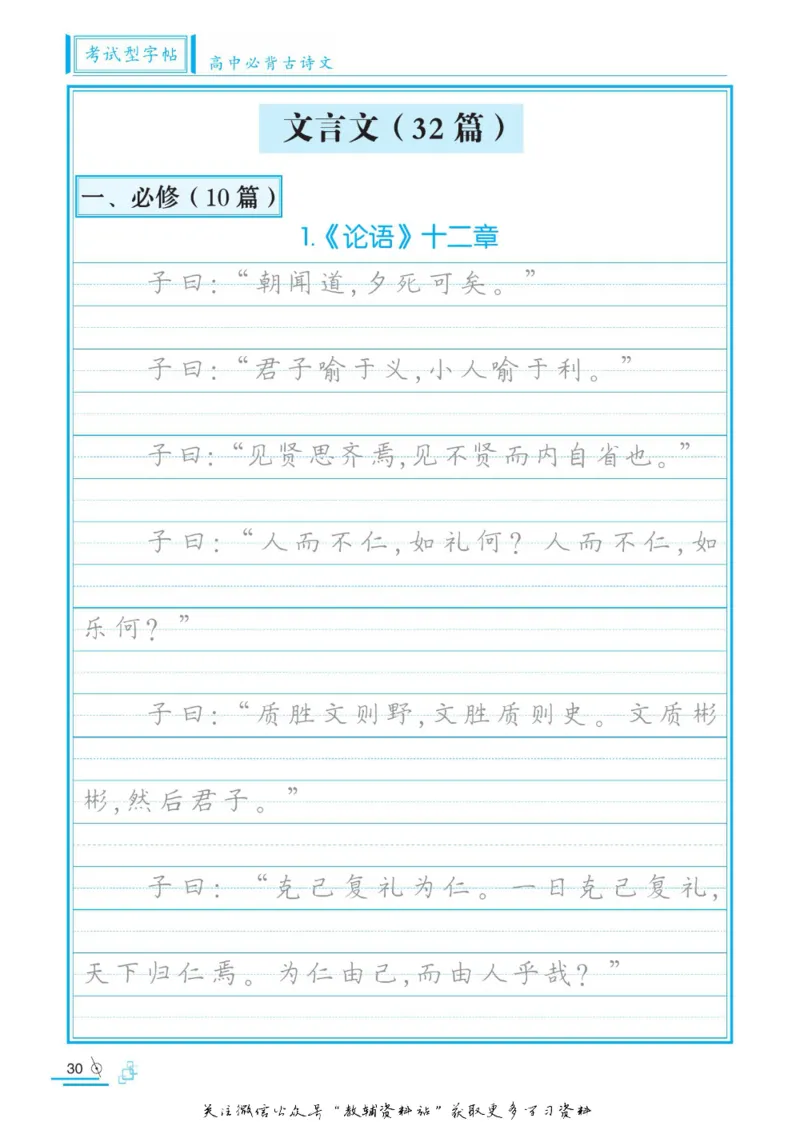 考试型字帖
高中必背古诗文
文言文（32 篇）
一、必修（10 篇）
1.《论语》十二章
子曰：“朝闻道，夕死可矣。”
子曰：“君子喻于义，小人喻于利。”
子曰：“见贤思齐焉，见不贤而内自省也。”
子曰：“人而不仁，如礼何？人而不仁，如
乐何？”
子曰：“质胜文则野，文胜质则史。文质彬
彬，然后君子。”
子曰：“克己复礼为仁。一日克己复礼，
天下归仁焉。为仁由己，而由人乎哉？”
30
关注微信公众号“教辅资料站”获取更多学习资料